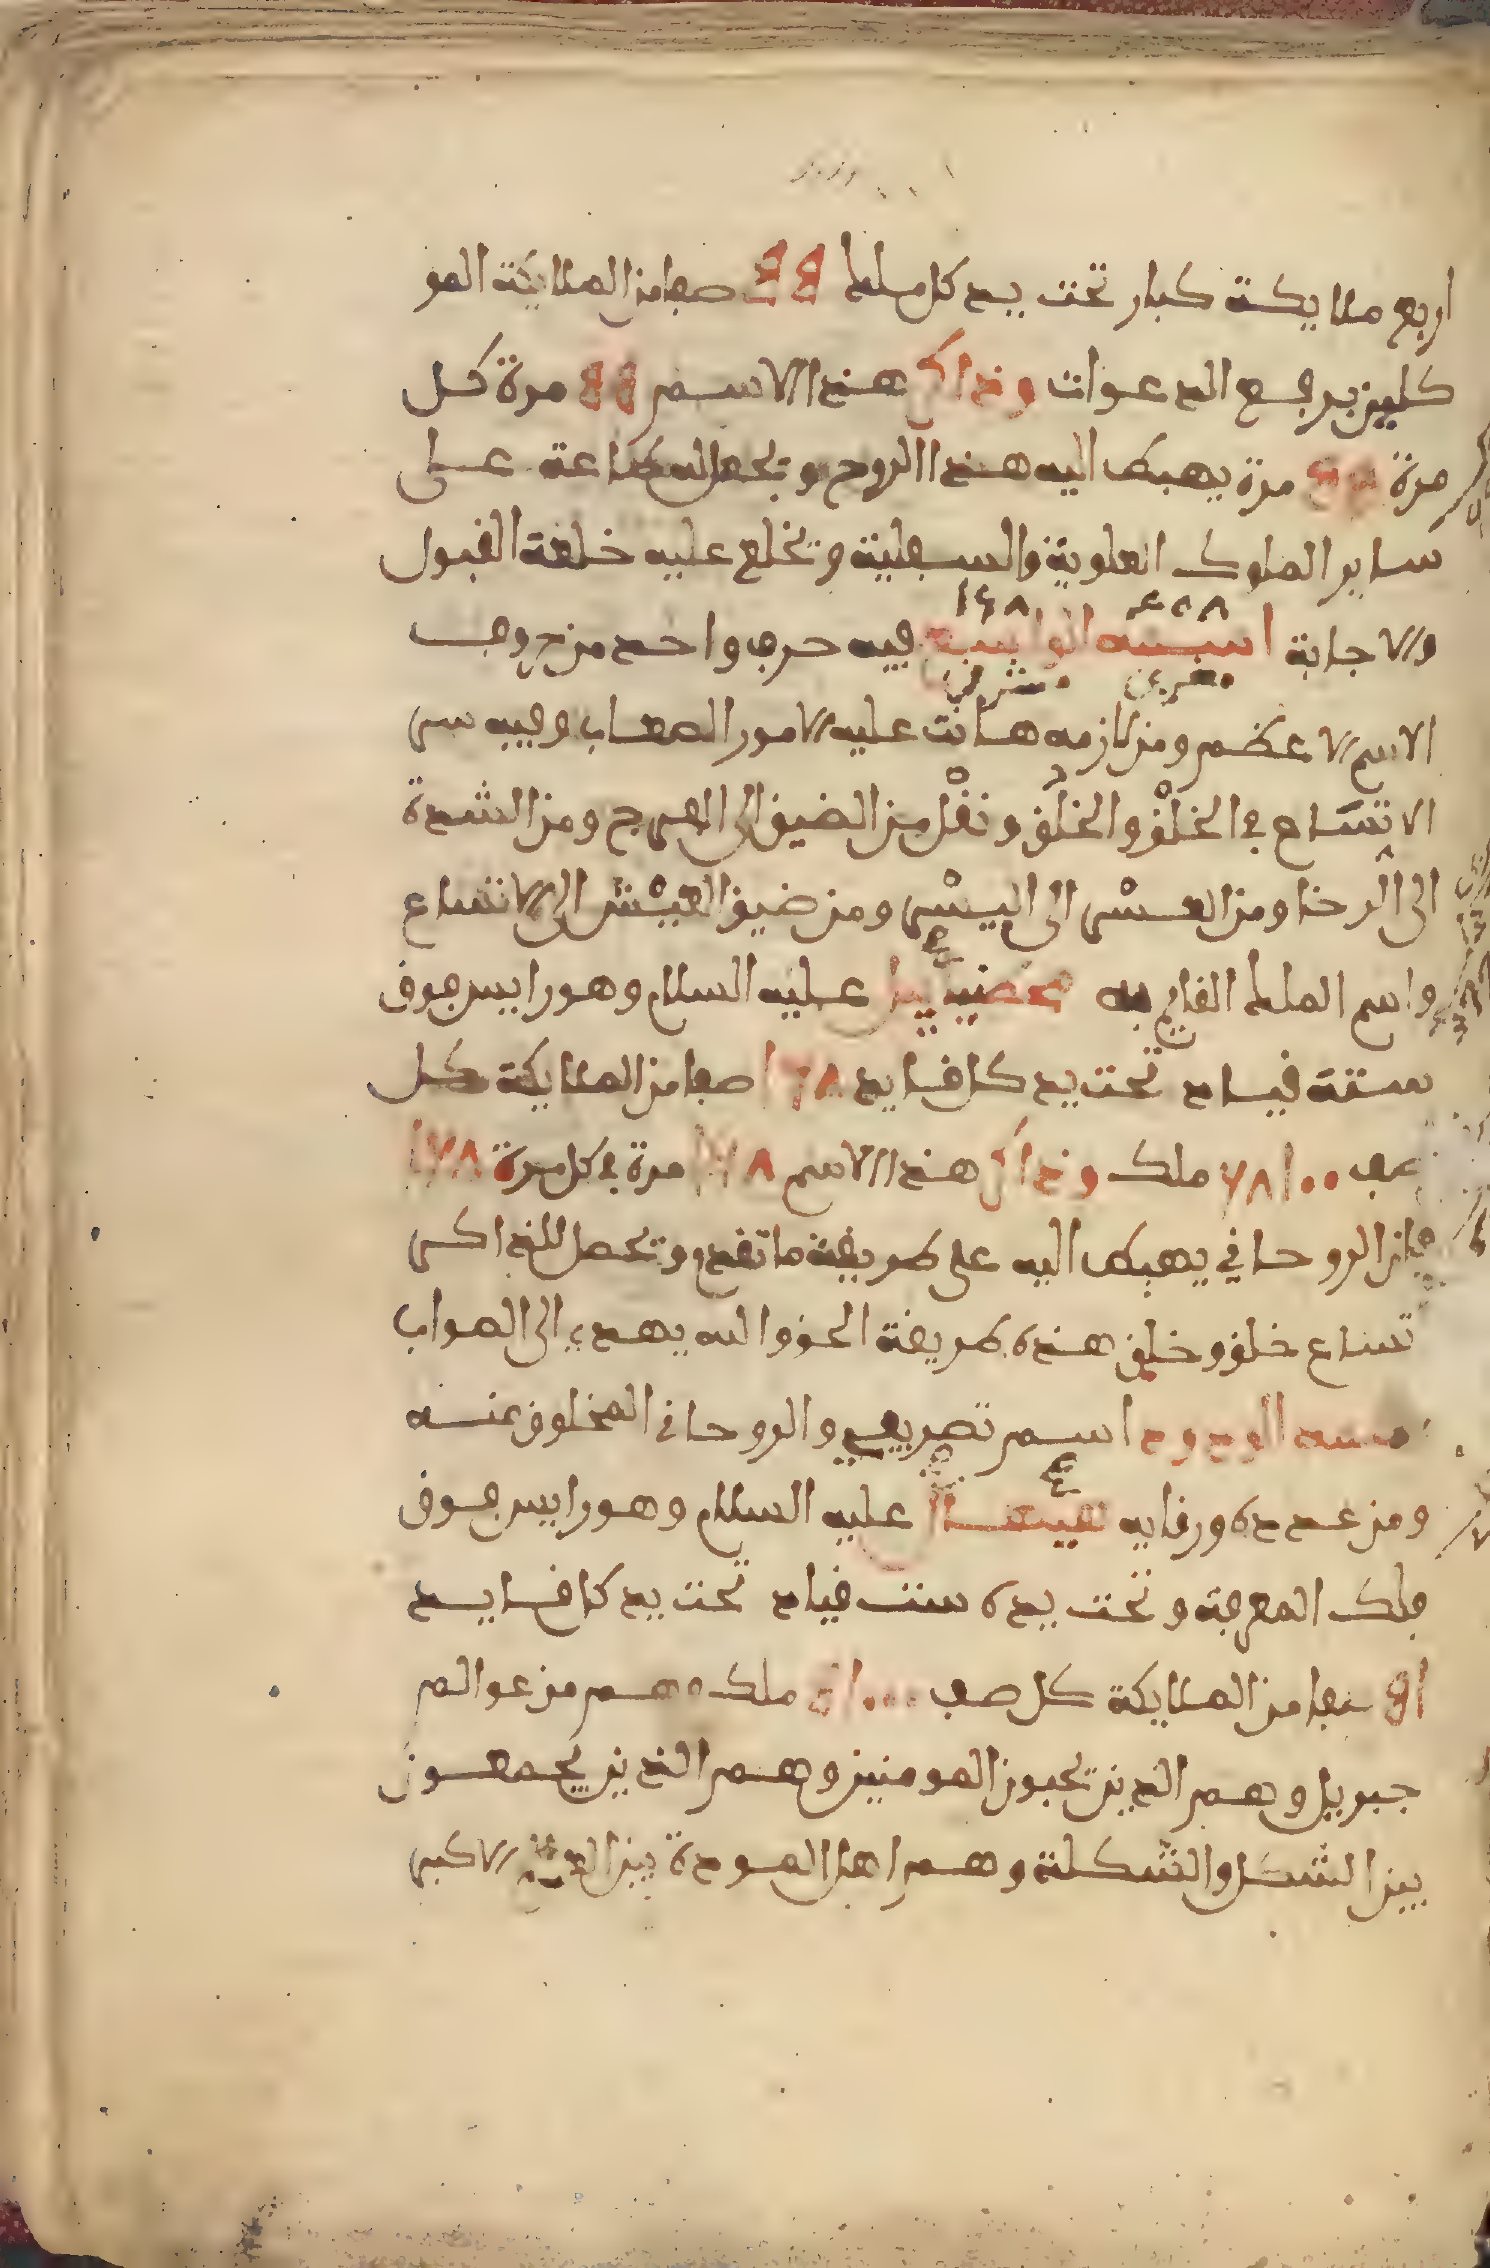 اربع ملايكة كبار تحت يد كل ملك صفا من الملايكة المو
كلين برفع الدعوات وذاكر هذا الاسم مرة كل
مرة مرة يهبط اليه هذا الروح وتجعل له طاعة على
ساير الملوك العلوية والسفلية وتخلع عليه خلعة القبول
والاجابة اسمه الواسع فيه حرف واحد من حروف
الاسم الاعظم ومن لازمه هانت عليه الامور الصعاب وفيه سر
الاتساع في الخلق والخلق ونقل من الضيق الى الفرج ومن الشدة
الى الرخا ومن العسر الى اليسر ومن ضيق العيش الى الاتساع
واسم الملك القايم به عليه السلام وهو راييس فوق
ستة قياد تحت يد كل قايد صفا من الملايكة كل
صف ملك وذاكر هذا الاسم مرة في كل مرة
فان الروحاني يهبط اليه على طريقة ما تقدم وتحصل للذاكر
تساع خلق وخلق هذه طريقة الحق والله يهدي الى الصواب
اسمه الودود اسم تصريف والروحاني المخلوق عنه
ومن عدده ورقايه عليه السلام وهو راييس فوق
فلك المعرفة وتحت يده ست قياد تحت يد كل قايد
صفا من الملايكة كل صف ملك وهم من عوالم
جبريل وهم الذين يحبون المومنين وهم الذين يجمعون
بين الشكل والشكلة وهم اهل المودة بين الاكبر